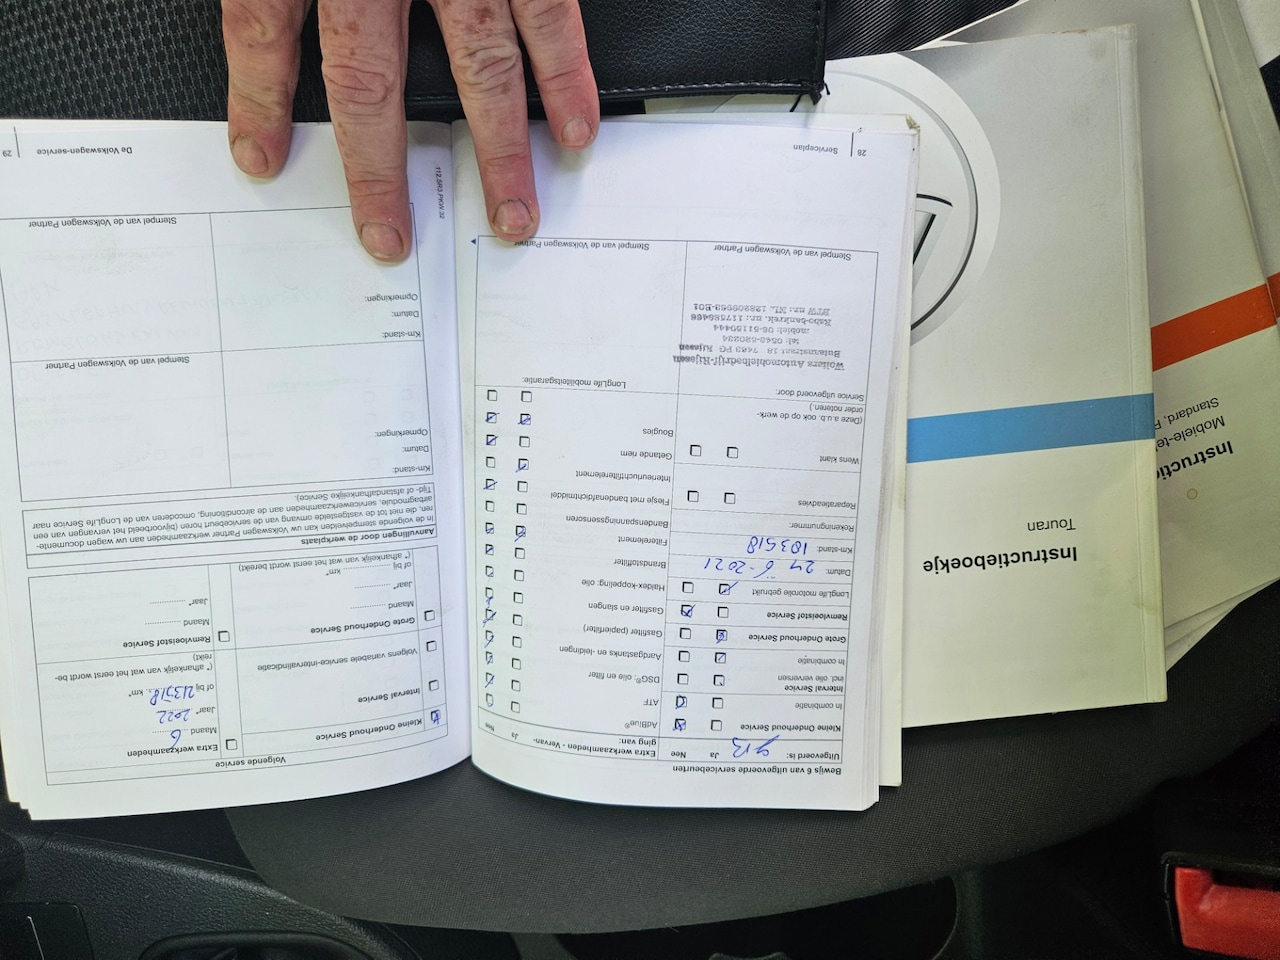 Serviceplan
28
Bewijs 6 van uitgevoerde servicebeurten
Uitgevoerd is:
Ja
Nee
Kleine Onderhoud Service
In combinatie
Interval Service
incl. olie verversen
In combinatie
Grote Onderhoud Service
Remvloeistof Service
LongLife motorolie gebruikt
Datum: 24 6-2021
Km-stand: 183518
Rekeningnummer:
Reparatieadvies
Wens klant
(Deze a.u.b. ook op de werk-
order noteren.)
Service uitgevoerd door:
Wolters Automobielbedrijf-Rijssen
7463 PG Rijssen
tel: 0548-520234
mobiel: 06-51150444
Rabo-bankrek. nr.: 117586466
Stempel van de Volkswagen Partner
Extra werkzaamheden - Vervan-
ging van:
Ja
Nee
AdBlue®
ATF
DSG®: olie en filter
Aardgastanks en -leidingen
Gasfilter (papierfilter)
Gasfilter en slangen
Haldex-koppeling: olie
Brandstoffilter
Filterelement
Bandenspanningssensoren
Flesje met bandenafdichtmiddel
Interieurluchtfilterelement
Getande riem
Bougies
LongLife mobiliteitsgarantie:
Stempel van de Volkswagen Partner
De Volkswagen-service
29
Volgende service
Kleine Onderhoud Service
Interval Service
Volgens variabele service-intervalindicatie
Grote Onderhoud Service
Maand
Jaar*
of bij km*
(* afhankelijk van wat het eerst wordt bereikt)
Extra werkzaamheden
Maand 6
Jaar* 2022
of bij 213518 km*
(* afhankelijk van wat het eerst wordt be-
reikt)
Remvloeistof Service
Maand
Jaar*
Aanvullingen door de werkplaats
In de volgende stempelvelden kan uw Volkswagen Partner werkzaamheden aan uw wagen documente-
ren, die niet tot de vastgestelde omvang van de servicebeurt horen (bijvoorbeeld het vervangen van een
airbagmodule, servicewerkzaamheden aan de airconditioning, omcoderen van de LongLife Service naar
Tijd- of afstandafhankelijke Service).
Km-stand:
Datum:
Opmerkingen:
Stempel van de Volkswagen Partner
Km-stand:
Datum:
Opmerkingen:
Stempel van de Volkswagen Partner
Instructieboekje
Touran
Mobiele-te
Standard, P